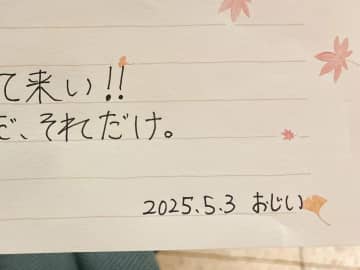 て来い!!
だ、それだけ。
2025.5.3 おじい